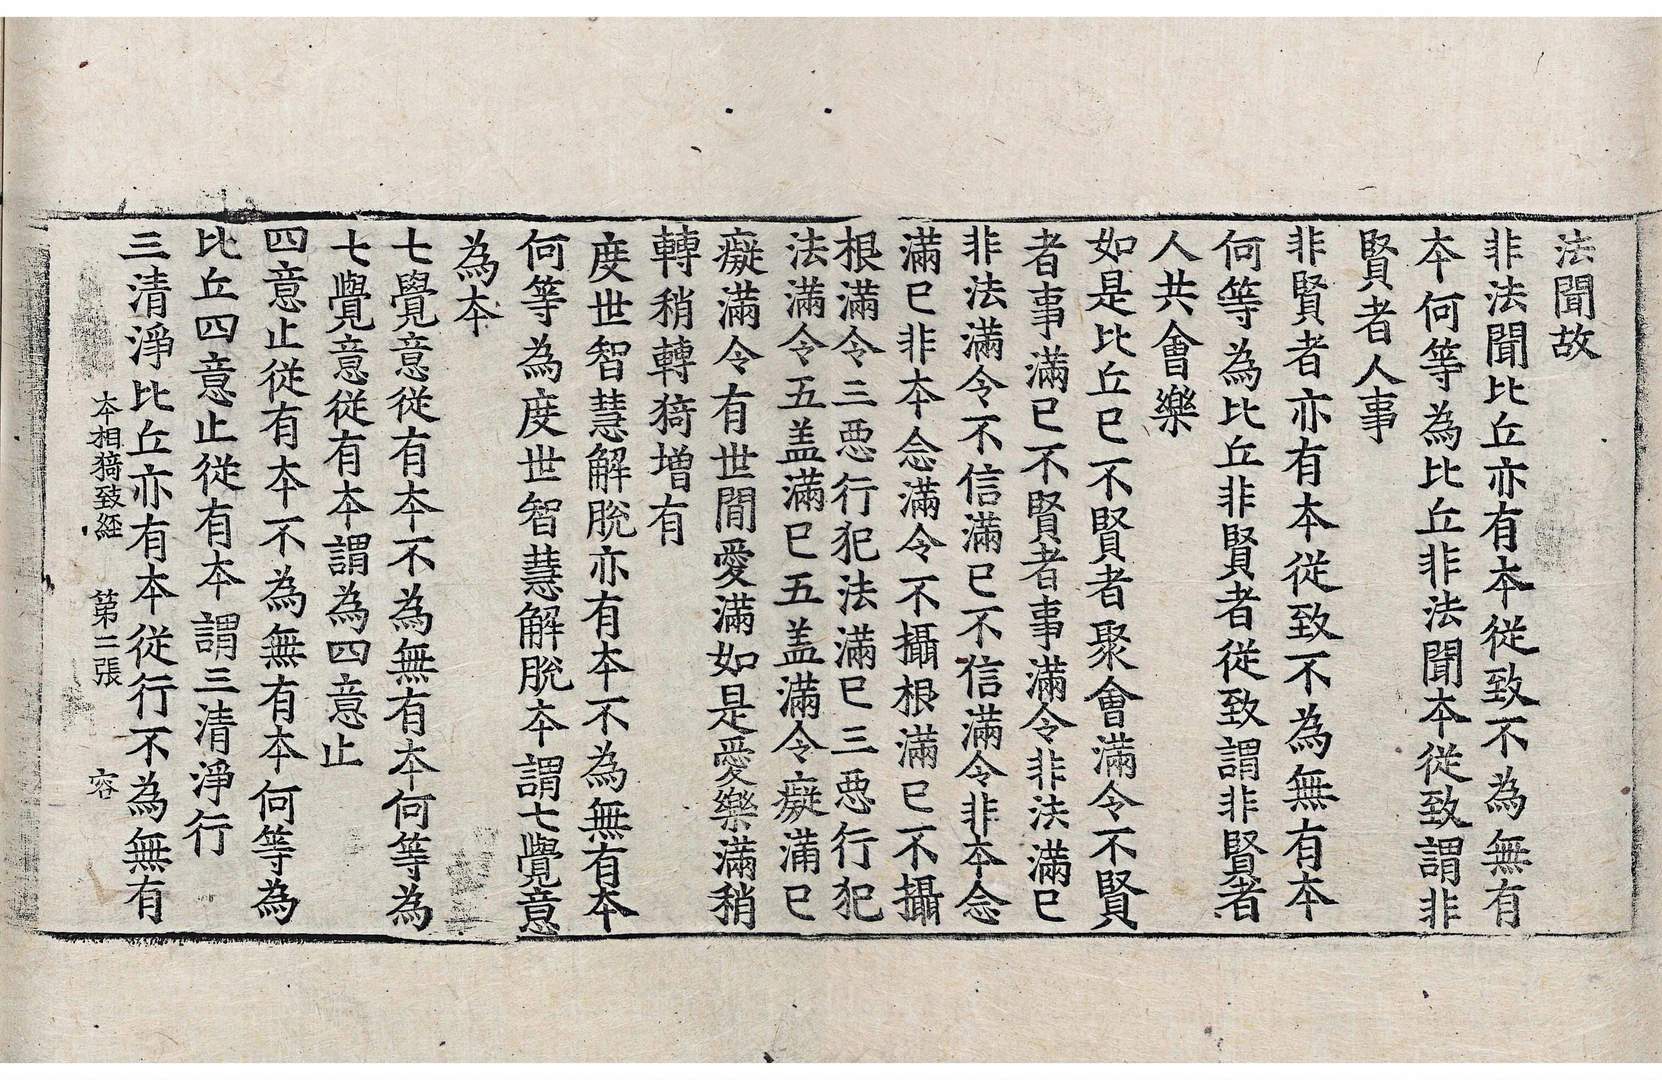 法聞故
非法聞比丘亦有本從致不為無有
本何等為比丘非法聞本從致謂非
賢者人事
非賢者亦有本從致不為無有本
何等為比丘非賢者從致謂非賢者
人共會樂
如是比丘已不賢者聚會滿令不賢
者事滿已不賢者事滿令非法滿已
非法滿令不信滿已不信滿令非本念
滿已非本念滿令不攝根滿已不攝
根滿令三惡行犯法滿已三惡行犯
法滿令五盖滿已五盖滿令癡滿已
癡滿令有世間愛滿如是愛愛樂滿稍
轉稍轉猗增有
度世智慧解脫亦有本不為無有本
何等為度世智慧解脫本謂七覺意
為本
七覺意從有本不為無有本何等為
七覺意從有本謂為四意止
四意止從有本不為無有本何等為
比丘四意止從有本謂三清淨行
三清淨比丘亦有本從行不為無有
本相猗致經 第二張 容